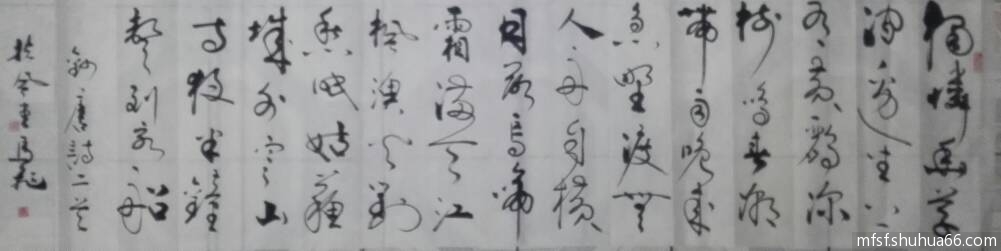 獨憐幽草
澗邊生上
有黃鸝深
樹鳴春潮
帶雨晚來
急野渡無
人舟自橫
月落烏啼
霜滿天江
楓漁火對
愁眠姑蘇
城外寒山
寺夜半鐘
聲到客船
錄唐詩二首
mfsfshuhua66.com